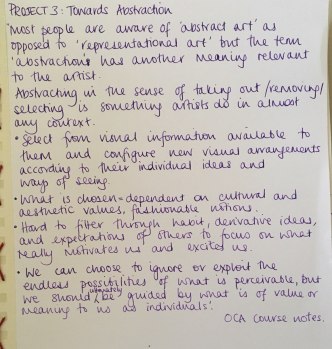 PROJECT 3: Towards Abstraction
'Most people are aware of 'abstract art' as
opposed to 'representational art' but the term
'abstraction' has another meaning relevant
to the artist.
Abstracting in the sense of taking out/removing/
selecting is something artists do in almost
any context.
• Select from visual information available to
them and configure new visual arrangements
according to their individual ideas and
ways of seeing.
• What is chosen = dependent on cultural and
aesthetic values, fashionable notions.
• Hard to filter through habit, derivative ideas,
and expectations of others to focus on what
really motivates us and excites us.
• We can choose to ignore or exploit the
endless possibilities of what is perceivable, but
we should ultimately be guided by what is of value or
meaning to us as individuals.'
OCA Course notes.